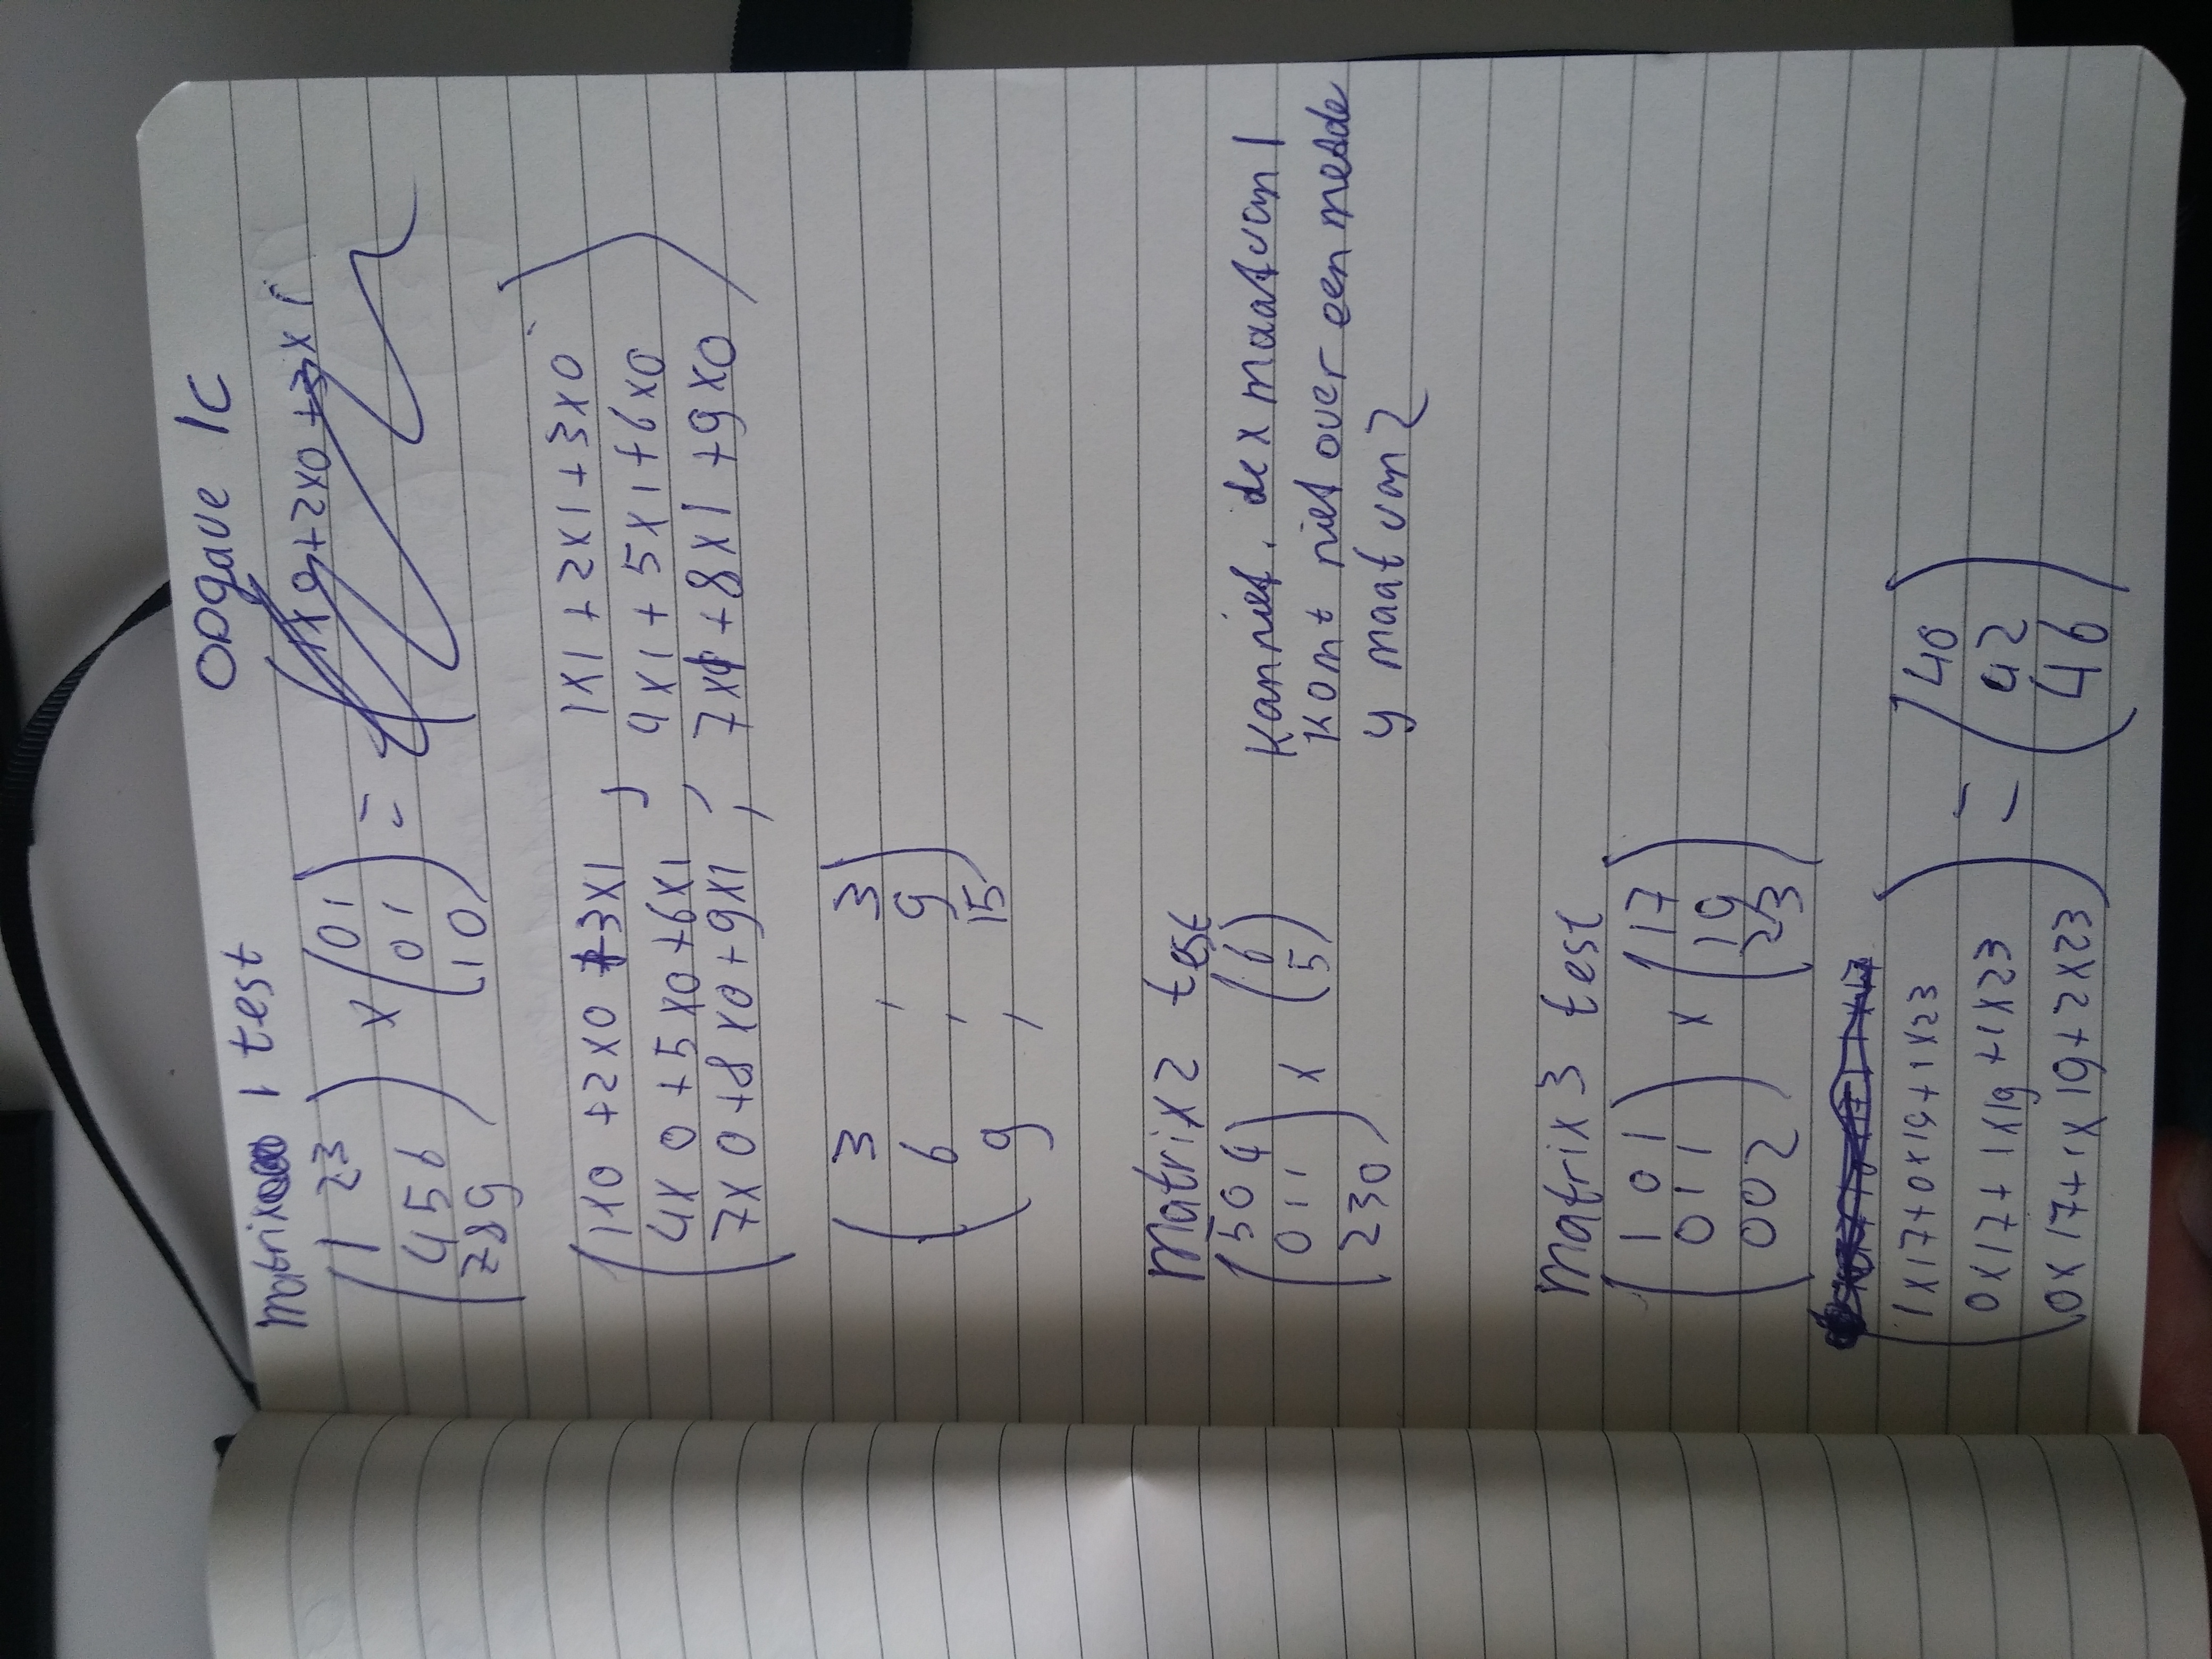 Opgave 1C
Matrix 1 test
( 1 2 3 ) ( 0 1 )
( 4 5 6 ) x ( 0 1 ) =
( 7 8 9 ) ( 1 0 )
1x0 + 2x0 + 3x1
( 1x0 + 2x0 + 3x1 , 1x1 + 2x1 + 3x0 )
( 4x0 + 5x0 + 6x1 , 4x1 + 5x1 + 6x0 )
( 7x0 + 8x0 + 9x1 , 7x1 + 8x1 + 9x0 )
( 3 , 3 )
( 6 , 9 )
( 9 , 15 )
Matrix 2 test
( 5 0 4 ) ( 6 )
( 0 1 1 ) x ( 5 )
( 2 3 0 )
Kan niet. de x maat van 1
komt niet over een met de
y maat van 2
Matrix 3 test
( 1 0 1 ) ( 17 )
( 0 1 1 ) x ( 19 )
( 0 0 2 ) ( 23 )
( 1x17 + 0x19 + 1x23 ) ( 40 )
( 0x17 + 1x19 + 1x23 ) = ( 42 )
( 0x17 + 1x19 + 2x23 ) ( 46 )